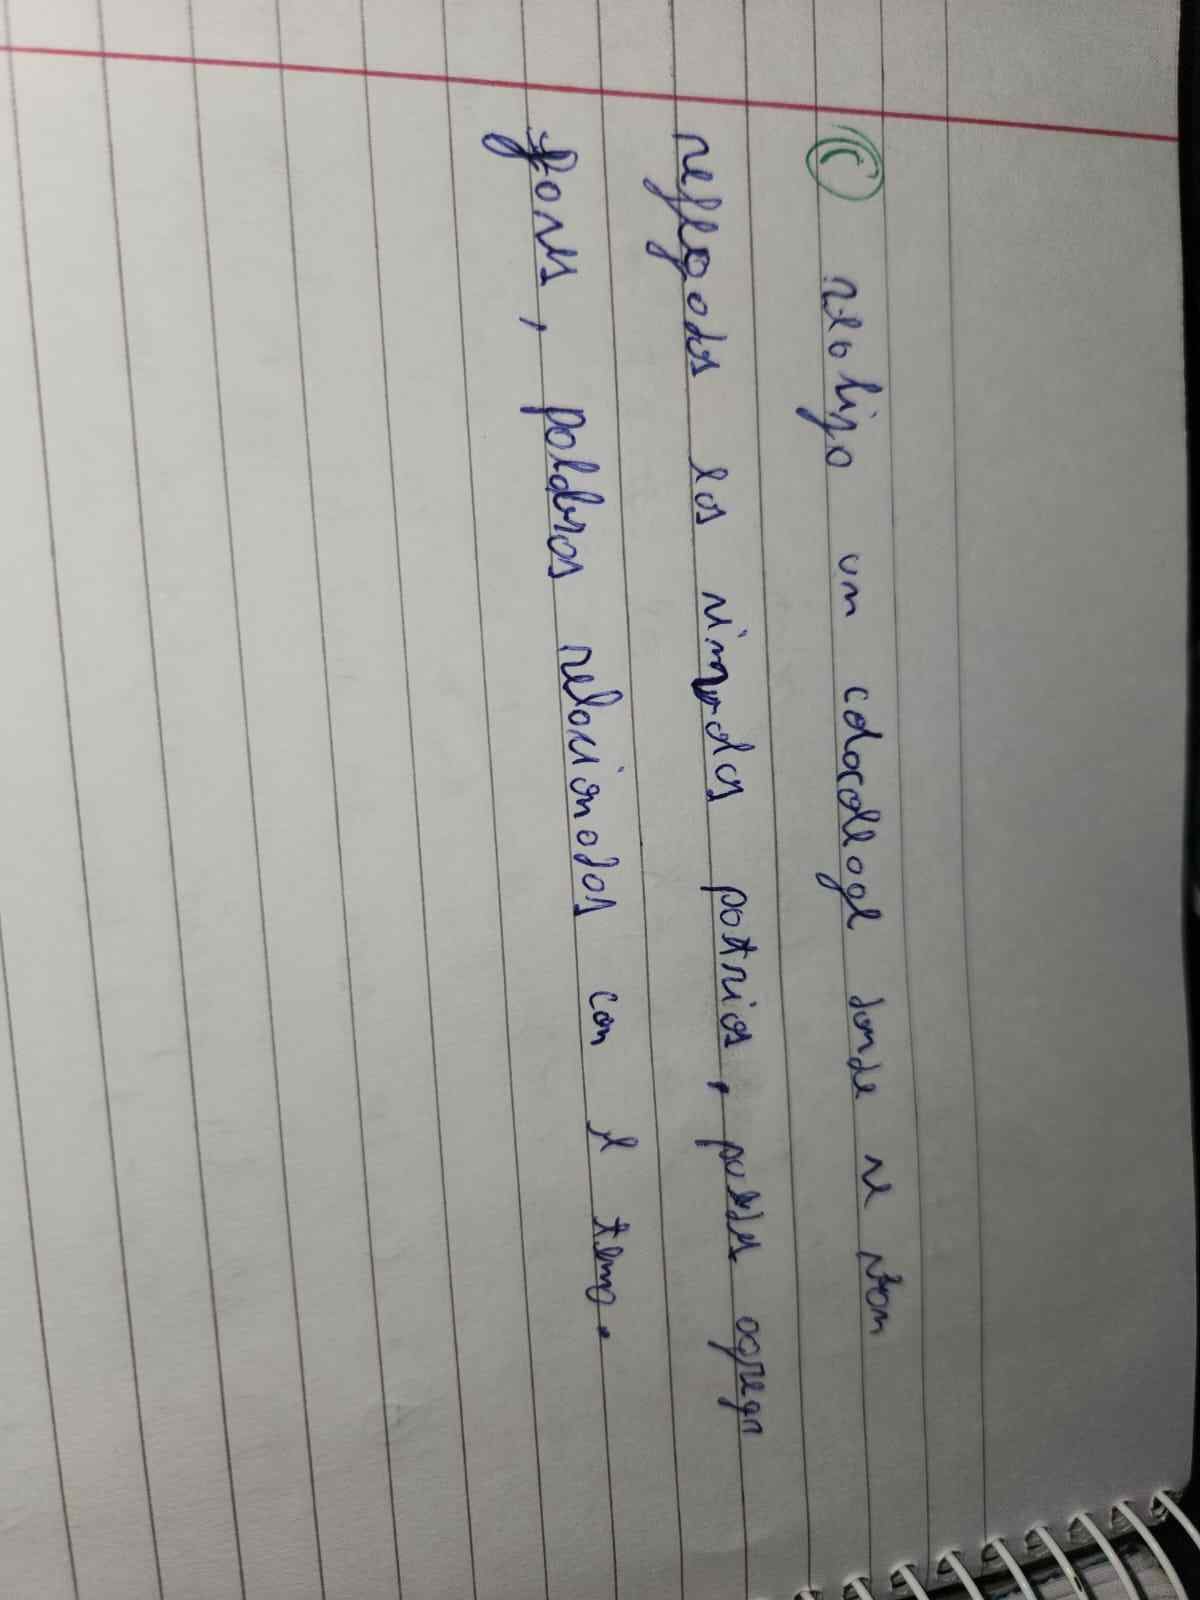 C realizo un colocolage donde se vean
reflejados los símbolos patrios, puedes agregar
flores, palabras relacionadas con el tema.